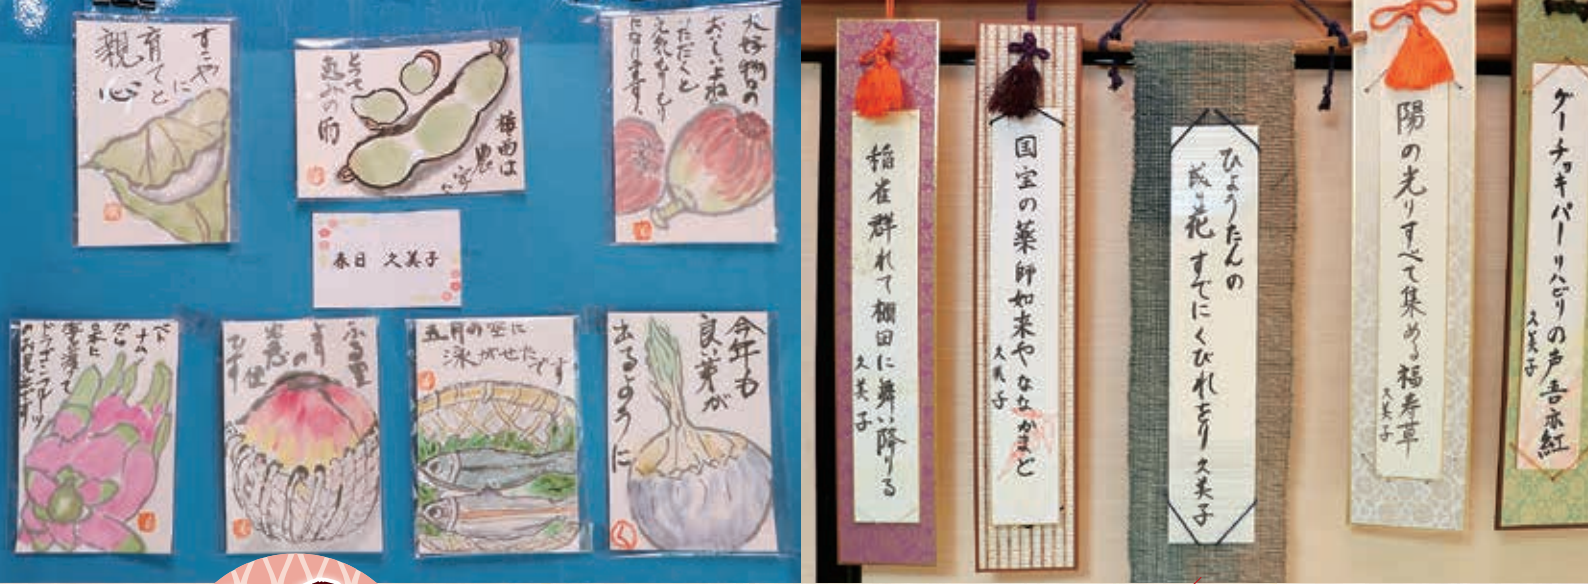 すこやかに
育てと
親心
梅雨は
農家に
とって
恵みの雨
大好物の
おいしいよね
ただくと
元気もりもり
になります。
春日 久美子
ベト
ナム
から
日本に
海を渡って
ドラゴンフルーツ
のお見立です
ふる里
五月の空に
泳がせたいです
今年も
良い芽が
出るように
稲雀群れて棚田に舞い降りる
久美子
国宝の薬師如来やななかまど
久美子
ひょうたんの
成り花すでにくびれをり 久美子
陽の光りすべて集める福寿草
久美子
グーチョキパーリハビリの声吾亦紅
久美子